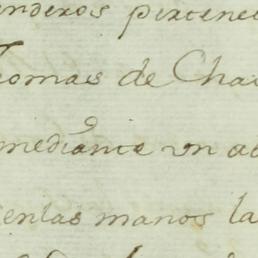 enderos pertene
Thomas de Cha
mediante un a
enlas manos la